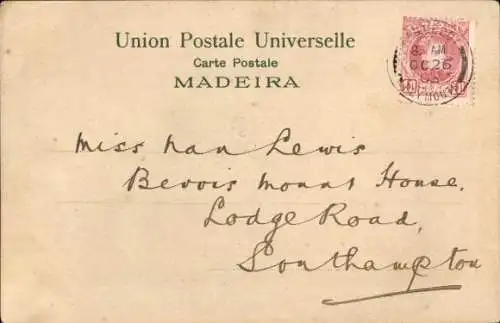 Union Postale Universelle
Carte Postale
MADEIRA
8 AM
OC 26
Miss Nan Lewis
Bevois Mount House,
Lodge Road,
Southampton